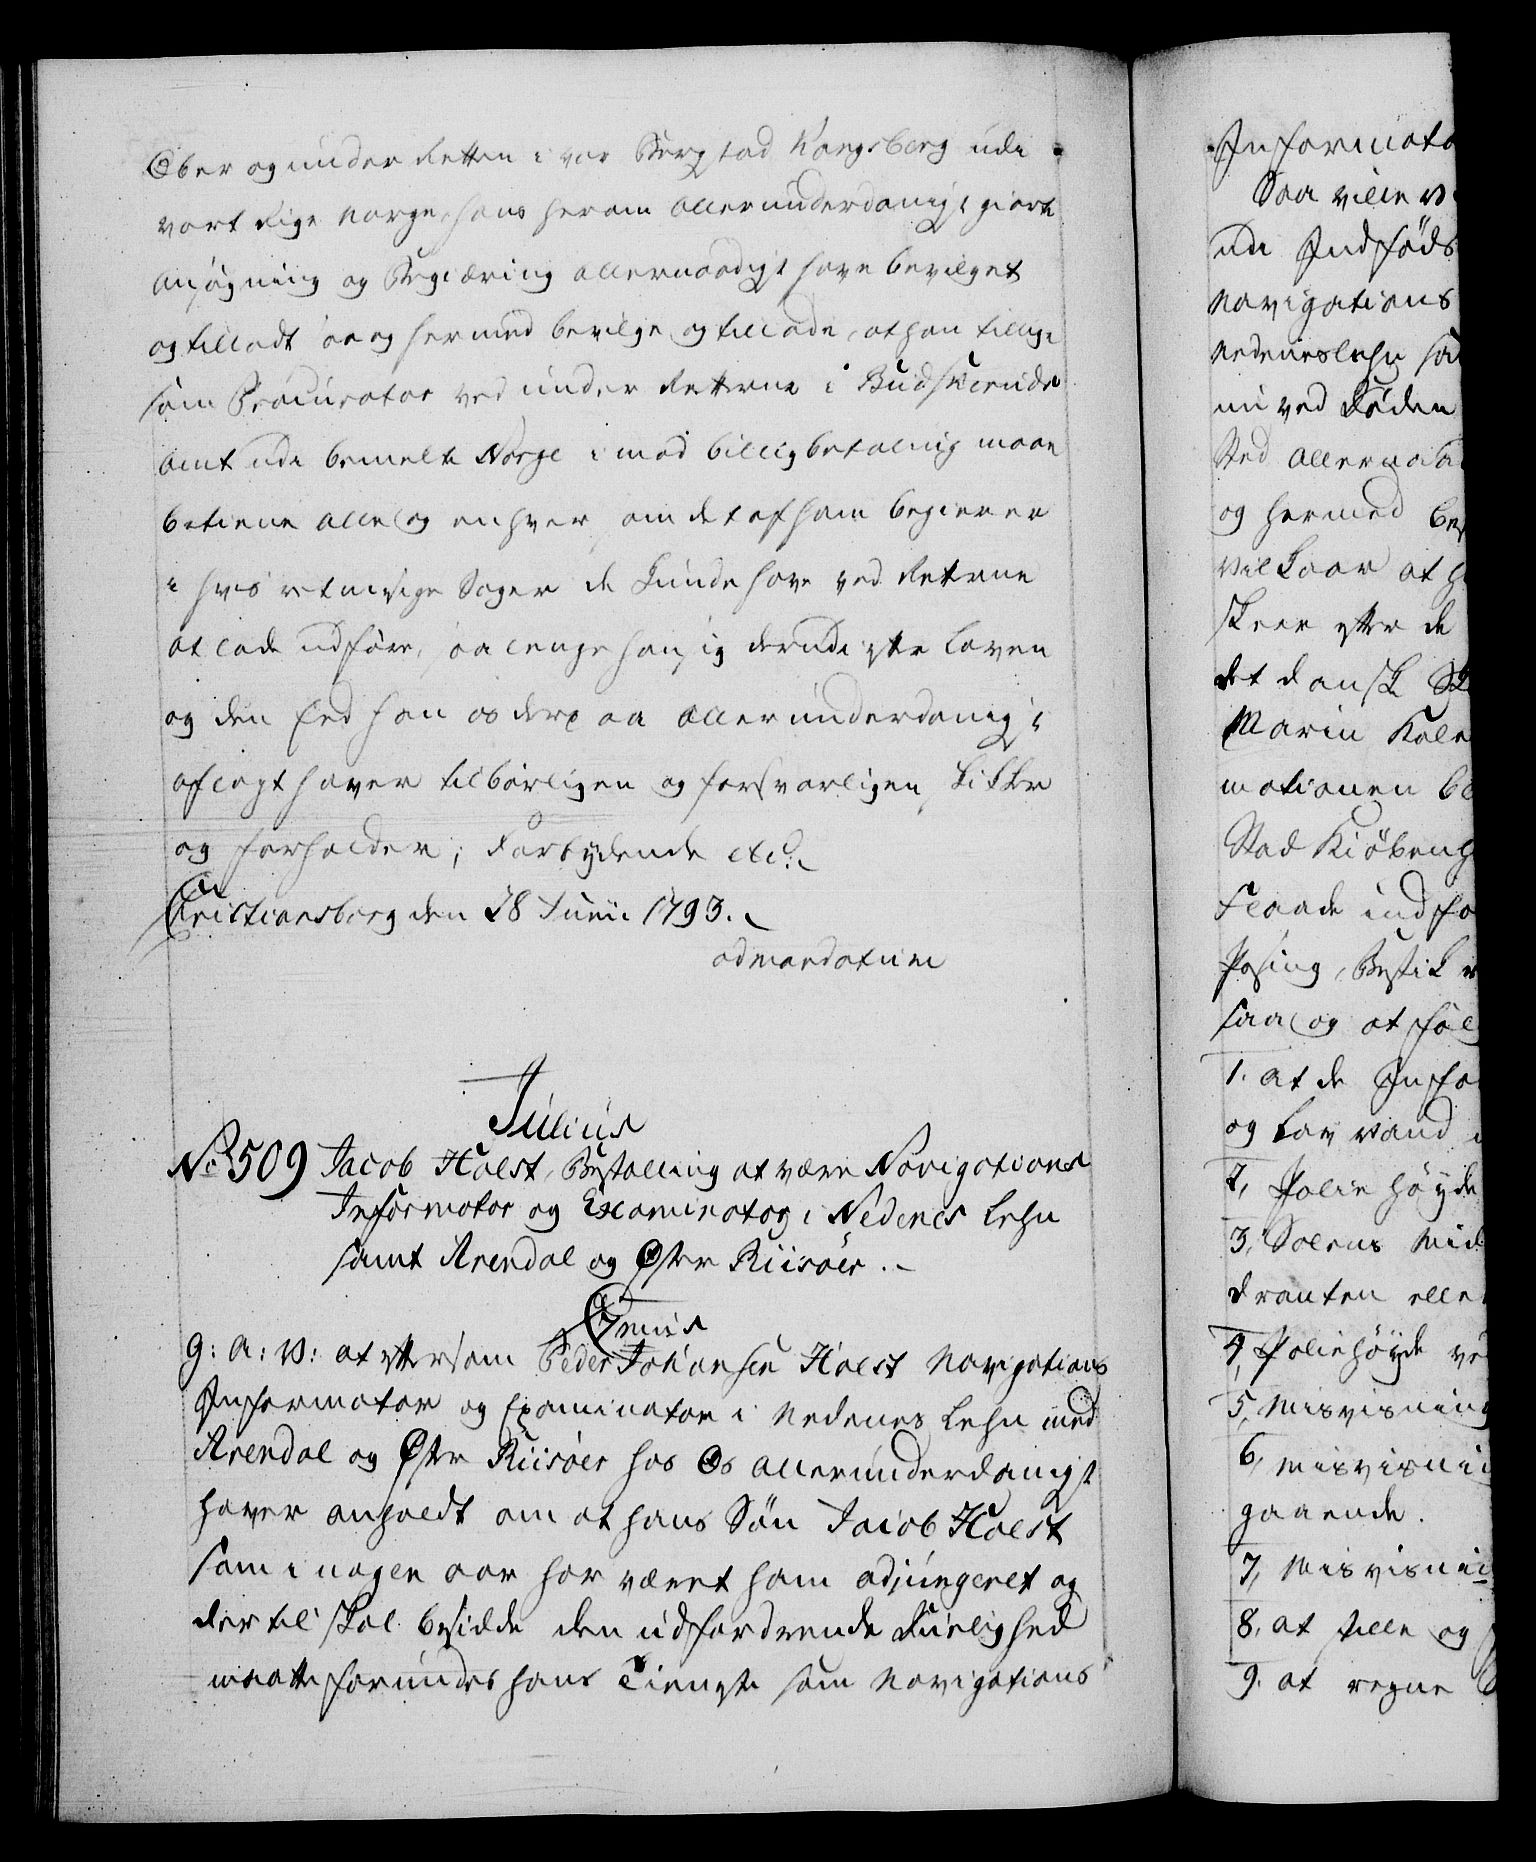 Ober og under Retten i vor Bergstad Kongsberg udi
vort Rige Norge, hans herom allerunderdanigst giorte
Ansøgning og Begiæring allernaadigst have bevilget
og tilladt, saa og hermed bevilge og tillade, at han tillige
som Procurator ved under Retterne i Budskerude
Amt udi bemelte Norge imod billig betaling maae
betiene alle og enhver, om det af ham begierer
i hvis retmesige Sager de kunde have ved Retterne
at lade udføre, saa lenge han sig derudi efter Loven
og den Eed han os derpaa allerunderdanigst
aflagt haver tilbørligen og forsvarligen skikker
og forholder; Forbydende etc.
Christiansborg den 28 Junii 1793.
ad mandatum
Julius
No 509 Jacob Holst, Bestalling at være Navigations
Informator og Examinator i Nedenes Lehn
samt Arendal og Øster Riisøer.
G: A: V: at eftersom Peder Johansen Holst Navigations
Informator og Examinator i Nedenes Lehn med
Arendal og Øster Riisøer hos Os allerunderdanigst
haver anholdt om at hans Søn Jacob Holst
som i nogen aar har været ham adjungeret og
dertil skal besidde den udfordrende Duelighed
maatte forundes hans Tieneste som Navigations
Informato
Saa ville v
udi Indføds
Navigations
Nedenes Lehn sa
nu ved Døden
Sted allernaa
og hermed be
vilkaar at h
skeer efter de
det danske
Marin
motionen
Stad Kiøbenh
Flaade indfø
Pasing, Bestik
saa og at føl
1. at de Info
og Lav vand
2, Polie høyde
3, Solens Mid
dranten elle
4, Poliehøyde ve
5, Misvisning
6, Misvisni
gaaende.
7, Misvisni
8, at stille og
9. at regne